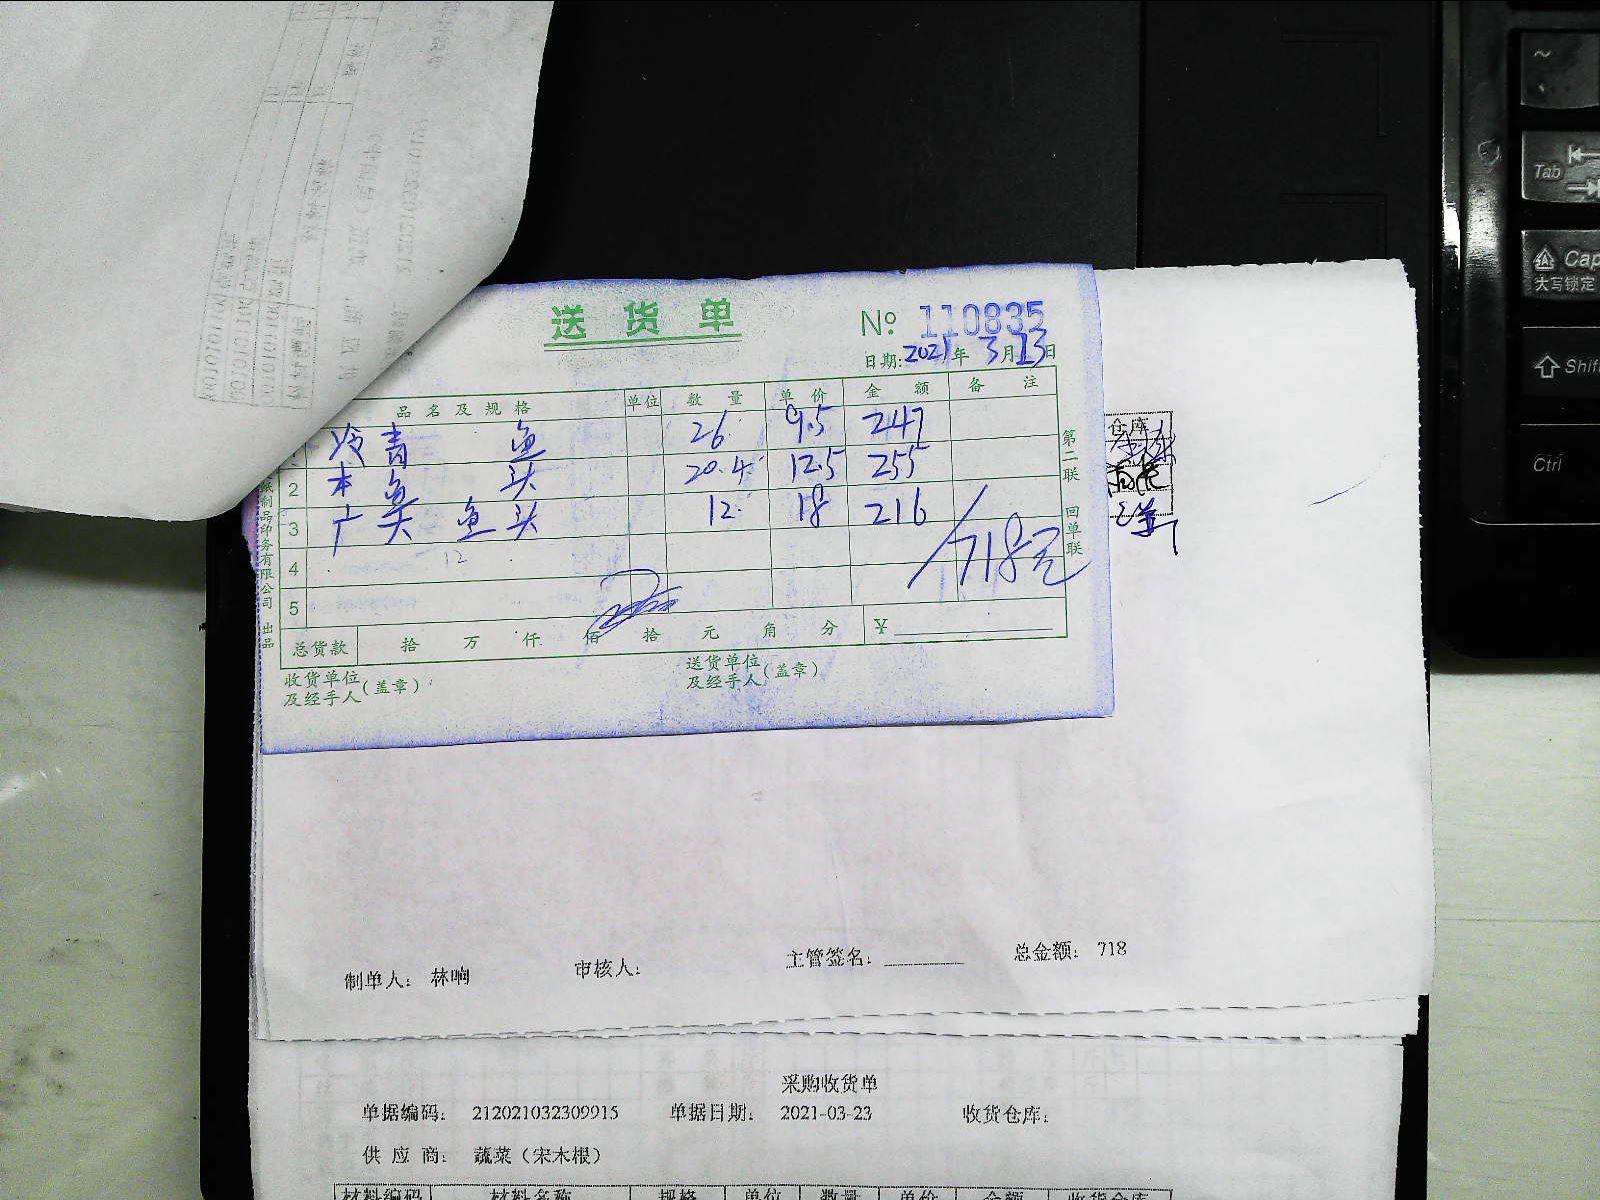 送 货 单
№ 110835
日期: 2021 年 3 月 13 日
品 名 及 规 格 单位 数 量 单 价 金 额 备 注
冷青 鱼 26 9.5 247
2 本鱼 头 20.4 12.5 255
3 广尖 鱼头 12 18 216
4 12 718元
5
总货款 拾 万 仟 佰 拾 元 角 分 ¥
收货单位
及经手人(盖章)
送货单位
及经手人(盖章)
第二联 回单联
纸制品印务有限公司 出品
仓库
制单人: 林响 审核人: 主管签名: 总金额: 718
采购收货单
单据编码: 212021032309915 单据日期: 2021-03-23 收货仓库:
供 应 商: 蔬菜(宋木根)
材料编码 材料名称 规格 单位 数量 单价 金额 收货仓库
~
Tab
Cap
大写锁定
Shif
Ctrl